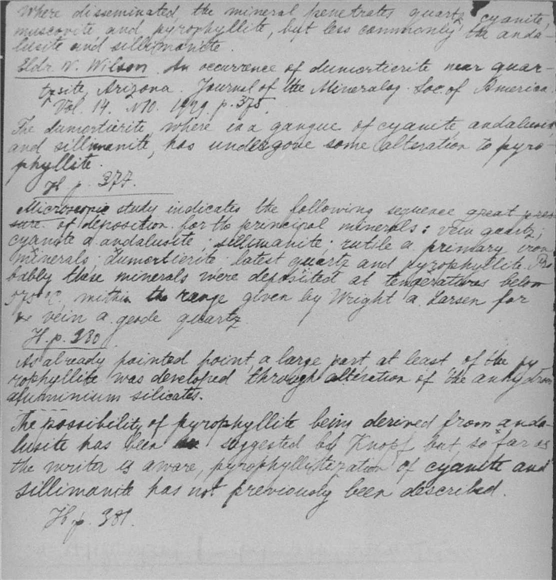 Where disseminated, the mineral penetrates quartz, cyanite,
muscovite and pyrophyllite, but less commonly the anda-
lusite and sillimanite.
Eldr. W. Wilson. An occurrence of dumortierite near quar-
tzsite, Arizona. Journal of the Mineralog. Soc. of America.
Vol. 14. No. 1929 p. 375.
The dumortierite, where is a gangue of cyanite andalusite
and sillimanite, has undergone some alteration to pyro-
phyllite.
p. 377.
Microscopic study indicates the following sequence great pres-
sure of deposition for the principal minerals: vein quartz;
cyanite a andalusite; sillimanite; rutile a primary iron
minerals; dumortierite; latest quartz and pyrophyllite. Pro
bably these minerals were deposited at temperatures below
within the range given by Wright a Larsen for
vein a geode quartz.
H. p. 380.
As already pointed point, a large part at least of the py
rophyllite was developed through alteration of the anhydrous
aluminium silicates.
The possibility of pyrophyllite being derived from anda-
lusite has been suggested by Knopf but, so far as
the writer is aware, pyrophyllitization of cyanite and
sillimanite has not previously been described.
H. p. 381.